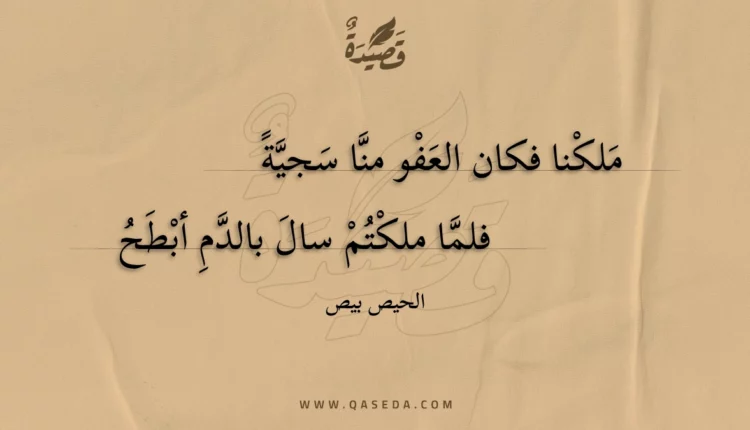 قَصِيْدَةٌ
مَلكْنا فكان العَفْو منَّا سَجيَّةً
فلمَّا ملكْتُمْ سالَ بالدَّمِ أبْطَحُ
الحيص بيص
WWW.QASEDA.COM